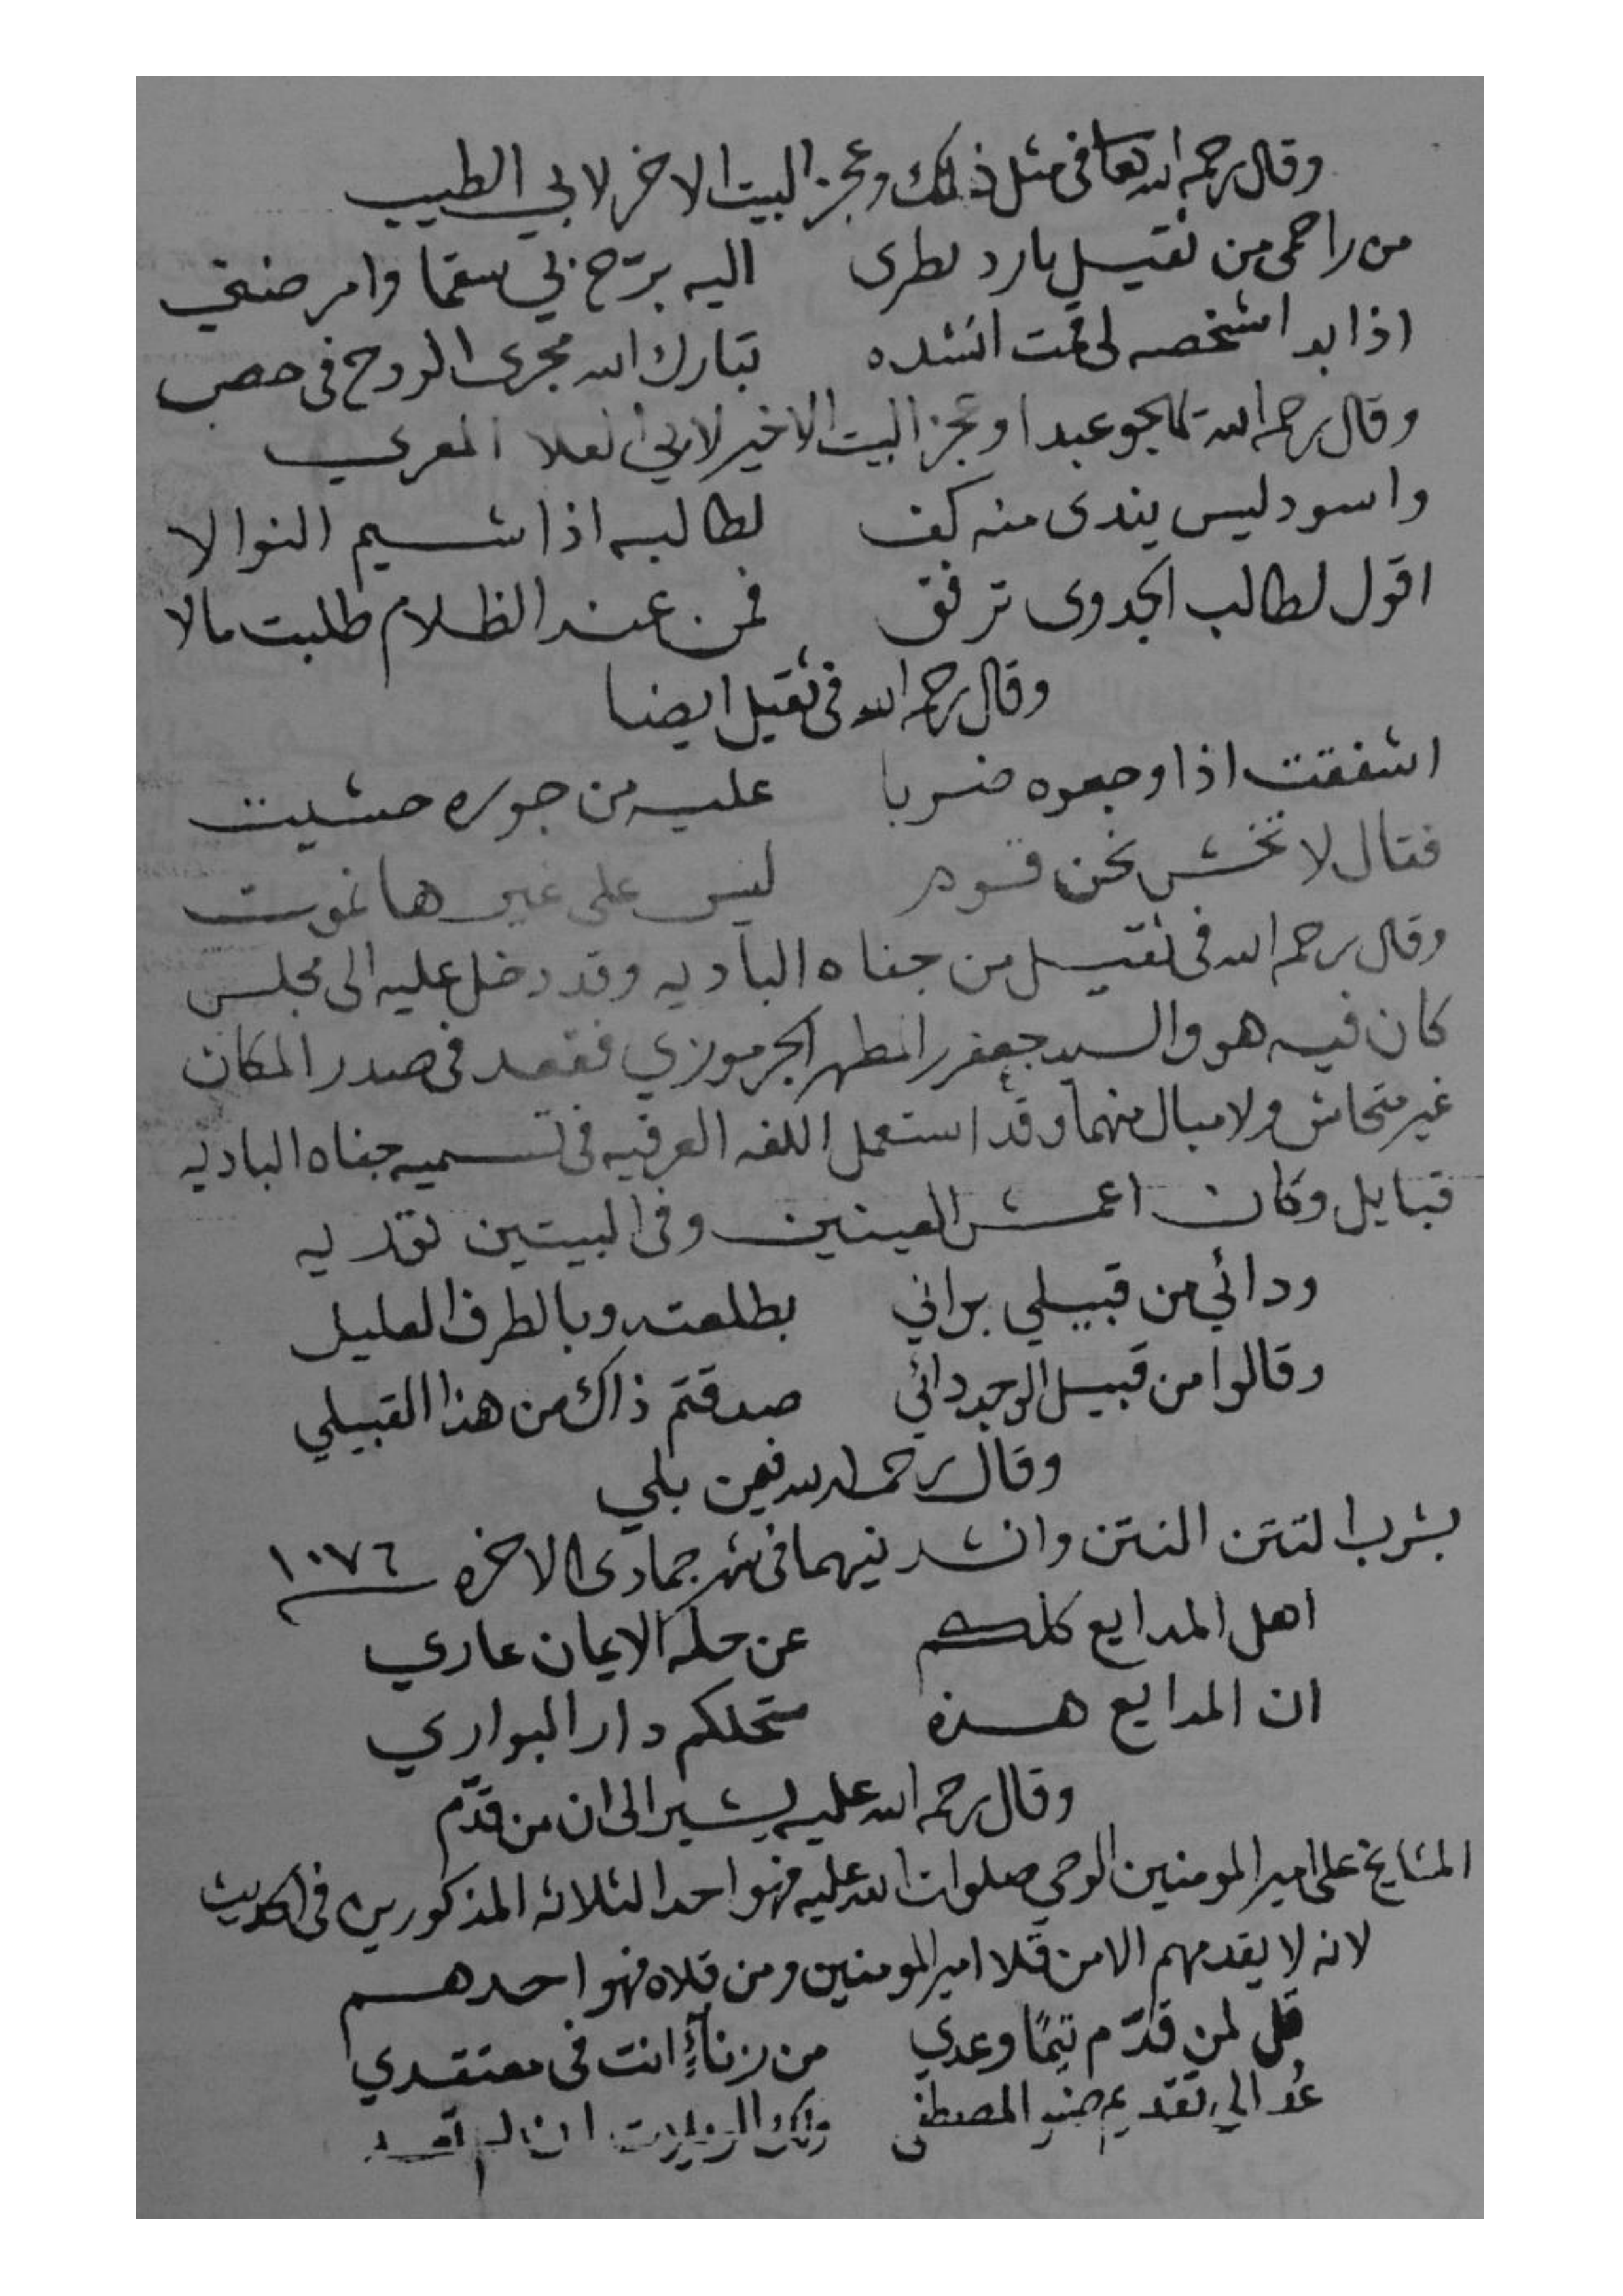 وقال رحمه الله تعا في مثل ذلك وعجز البيت الاخر لابي الطيب
من راحمي من ثقيل بارد نطرى اليه برّح بي سقما وامرضني
اذا بدا شخصه لي قمت انشده تبارك الله مجرى الروح في حضن
وقال رحمه الله تعا يهجو عبدا وعجز البيت الاخير لابي العلا المعري
واسود ليس يندى منه كف لطالبه اذا شيم النوالا
اقول لطالب الجدوى ترفق فمن عند الظلام طلبت مالا
وقال رحمه الله في ثقيل ايضا
اشفقت اذا وجعوه ضربا عليه من جوره حشيت
فقال لا تخش نحن قوم ليس على غيرها نموت
وقال رحمه الله في ثقيل من جفاه الباديه وقد دخل عليه الى مجلس
كان فيه هو والسيد جعفر المطهر الجرموزي فقعد في صدر المكان
غير متحاش ولا مبال منهما وقد استعمل اللغه العرفيه في تسميه جفاه الباديه
قبايل وكان اعمش العينين وفى البيتين توريه
ودائي من قبيلي براني بطلعته وبالطرف العليل
وقالوا من قبيل الوجد دائي صدقتم ذاك من هذا القبيلي
وقال رحمه الله فيمن بلي
بشرب التتن النتن وانشدنيهما في شهر جمادى الاخره ١٠٧٦
اهل المدايع كلكم عن حله الايمان عاري
ان المدايع هذه ستحلكم دار البواري
وقال رحمه الله عليه يشير الى ان من قدّم
المشايخ على امير المومنين الوصي صلوات الله عليه فهو احد الثلاثه المذكورين في الحديث
لانه لا يقدمهم الا من قلا امير المومنين ومن قلاه فهو احدهم
قل لمن قدّم تيمًا وعدي من زناءٍ انت في معتقدي
عُد الى تقديم صنو المصطفى